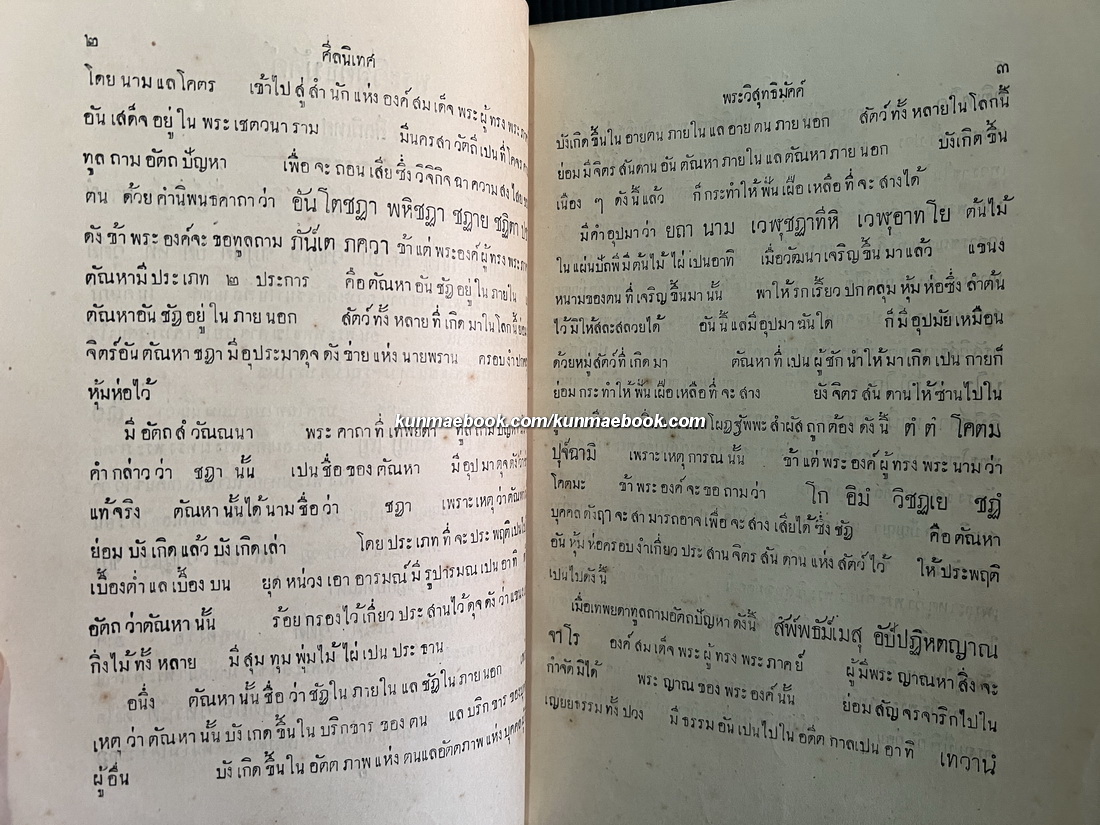 ๒
ศีลนิเทศ
โดย นาม แล โคตร เข้าไป สู่ สำ นัก แห่ง องค์ สม เด็จ พระ ผู้ ทรง พระ
อัน เสด็จ อยู่ ใน พระ เชตวนา ราม มีนครสา วัตถีเปน ที่โคจร
ทูล ถาม อัตถ ปัญหา เพื่อ จะ ถอน เสีย ซึ่ง วิจิกิจ ฉา ความ สง ไสย
ตน ด้วย คำนิพนธคาถา ว่า อัน โตชฏา พหิชฏา ชฏาย ชฏิตา
ดัง ข้า พระ องค์จะ ขอทูลถาม ภันเต ภควา ข้า แต่ พระองค์ ผู้ ทรง พระ
ตัณหามีประเภท ๒ ประการ คือตัณหา อัน ชัฏ อยู่ ใน ภายใน
ตัณหาอัน ชัฏ อยู่ ใน ภาย นอก สัตว์ ทั้ง หลาย ที่ เกิด มาใน โลกนี้
จิตร์อัน ตัณหา ชฎา มีอุประมาดุจ ดัง ข่าย แห่ง นายพราน ครอบ งำ
หุ้มห่อไว้
มี อัตถ สํ วัณณนา พระ คาถา ที่ เทพยดา ทูล ถาม
คำ กล่าว ว่า ชฎา นั้น เปน ชื่อ ของ ตัณหา มี อุป มา ดุจ
แท้ จริง ตัณหา นั้นได้ นาม ชื่อ ว่า ชฎา เพราะ เหตุ ว่า
ย่อม บัง เกิด แล้ว บัง เกิด เล่า โดย ประ เภท ที่ จะ ประ พฤติ
เบื้องต่ำ แล เบื้อง บน ยุด หน่วง เอา อารมณ์ มี รูปารมณ เปน อาทิ
อัตถ ว่าตัณหา นั้น ร้อย กรองไว้ เกี่ยว ประ สานไว้ ดุจ ดัง ว่า
กิ่งไม้ ทั้ง หลาย มี สุม ทุม พุ่ม ไม้ ไผ่ เปน ประ ธาน
อนึ่ง ตัณหา นั้น ชื่อ ว่า ชัฏใน ภายใน แล ชัฏใน ภาย นอก
เหตุ ว่า ตัณหา นั้น บัง เกิด ขึ้นใน บริกขาร ของ ตน แล บริก ขาร
ผู้ อื่น บัง เกิด ขึ้นใน อัตต ภาพ แห่ง ตนแลอัตตภาพ แห่ง
๓
พระวิสุทธิมัคค์
บังเกิดขึ้นใน อายตน ภายใน แล อายตน ภาย นอก สัตว์ ทั้ง หลายใน โลกนี้
ย่อม มี จิตร สันดาน อัน ตัณหา ภายใน แล ตัณหา ภาย นอก บังเกิด ขึ้น
เนือง ๆ ดังนี้ แล้ว ก็ กระทำให้ ฟั่น เฝือ เหลือ ที่ จะ สางได้
มี คำ อุปมา ว่า ยถา นาม เวฬุชฏาทีหิ เวฬุอาทโย ต้นไม้
ใน แผ่น ปัถพี มี ต้นไม้ ไผ่ เปนอาทิ เมื่อวัฒนา เจริญ ขึ้น มา แล้ว แขนง
หนามของตน ที่ เจริญ ขึ้นมา นั้น พาให้ รก เรี้ยว ปก คลุม หุ้ม ห่อซึ่ง ลำต้น
ไว้ มิให้ สละสลวยได้ อัน นี้ แลมี อุปมา ฉันใด ก็ มี อุปมัย เหมือน
ด้วยหมู่สัตว์ที่ เกิด มา ตัณหา ที่ เปน ผู้ ชัก นำให้ มา เกิด เปน กายก็
ย่อม กระ ทำให้ ฟั่น เฝือ เหลือ ที่ จะ สาง ยัง จิตร สัน ดานให้ ซ่าน ไปใน
โผฏฐัพพะ สำผัส ถูก ต้อง ดังนี้ ตํ ตํ โคตม
ปุจฉามิ เพราะ เหตุ การณ นั้น ข้า แต่ พระ องค์ ผู้ ทรง พระ นาม ว่า
โคตมะ ข้า พระ องค์ จะ ขอ ถาม ว่า โก อิมํ วิชฏเย ชฏํ
บุคคล ดังฤา จะ สา มารถอาจ เพื่อ จะ สาง เสียได้ ซึ่ง ชัฏ คือ ตัณหา
อัน หุ้ม ห่อครอบ งำเกี่ยว ประ สาน จิตร สัน ดาน แห่ง สัตว์ ไว้ ให้ ประพฤติ
เปนไปดังนี้
เมื่อเทพยดาทูลถามอัตถปัญหา ดังนี้ สัพพธัมเมสุ อัปปฏิหตญาณ
จาโร องค์ สม เด็จ พระ ผู้ ทรง พระ ภาคย์ ผู้ มีพระ ญาณหา สิ่ง จะ
กำจัด มิได้ พระ ญาณ ของ พระ องค์ นั้น ย่อม สัญ จรจาริก ไปใน
เญยยธรรม ทั้ง ปวง มี ธรรม อัน เปนไปใน อดีต กาลเปน อาทิ เทวานํ
kunmaebook.com/kunmaebook.com